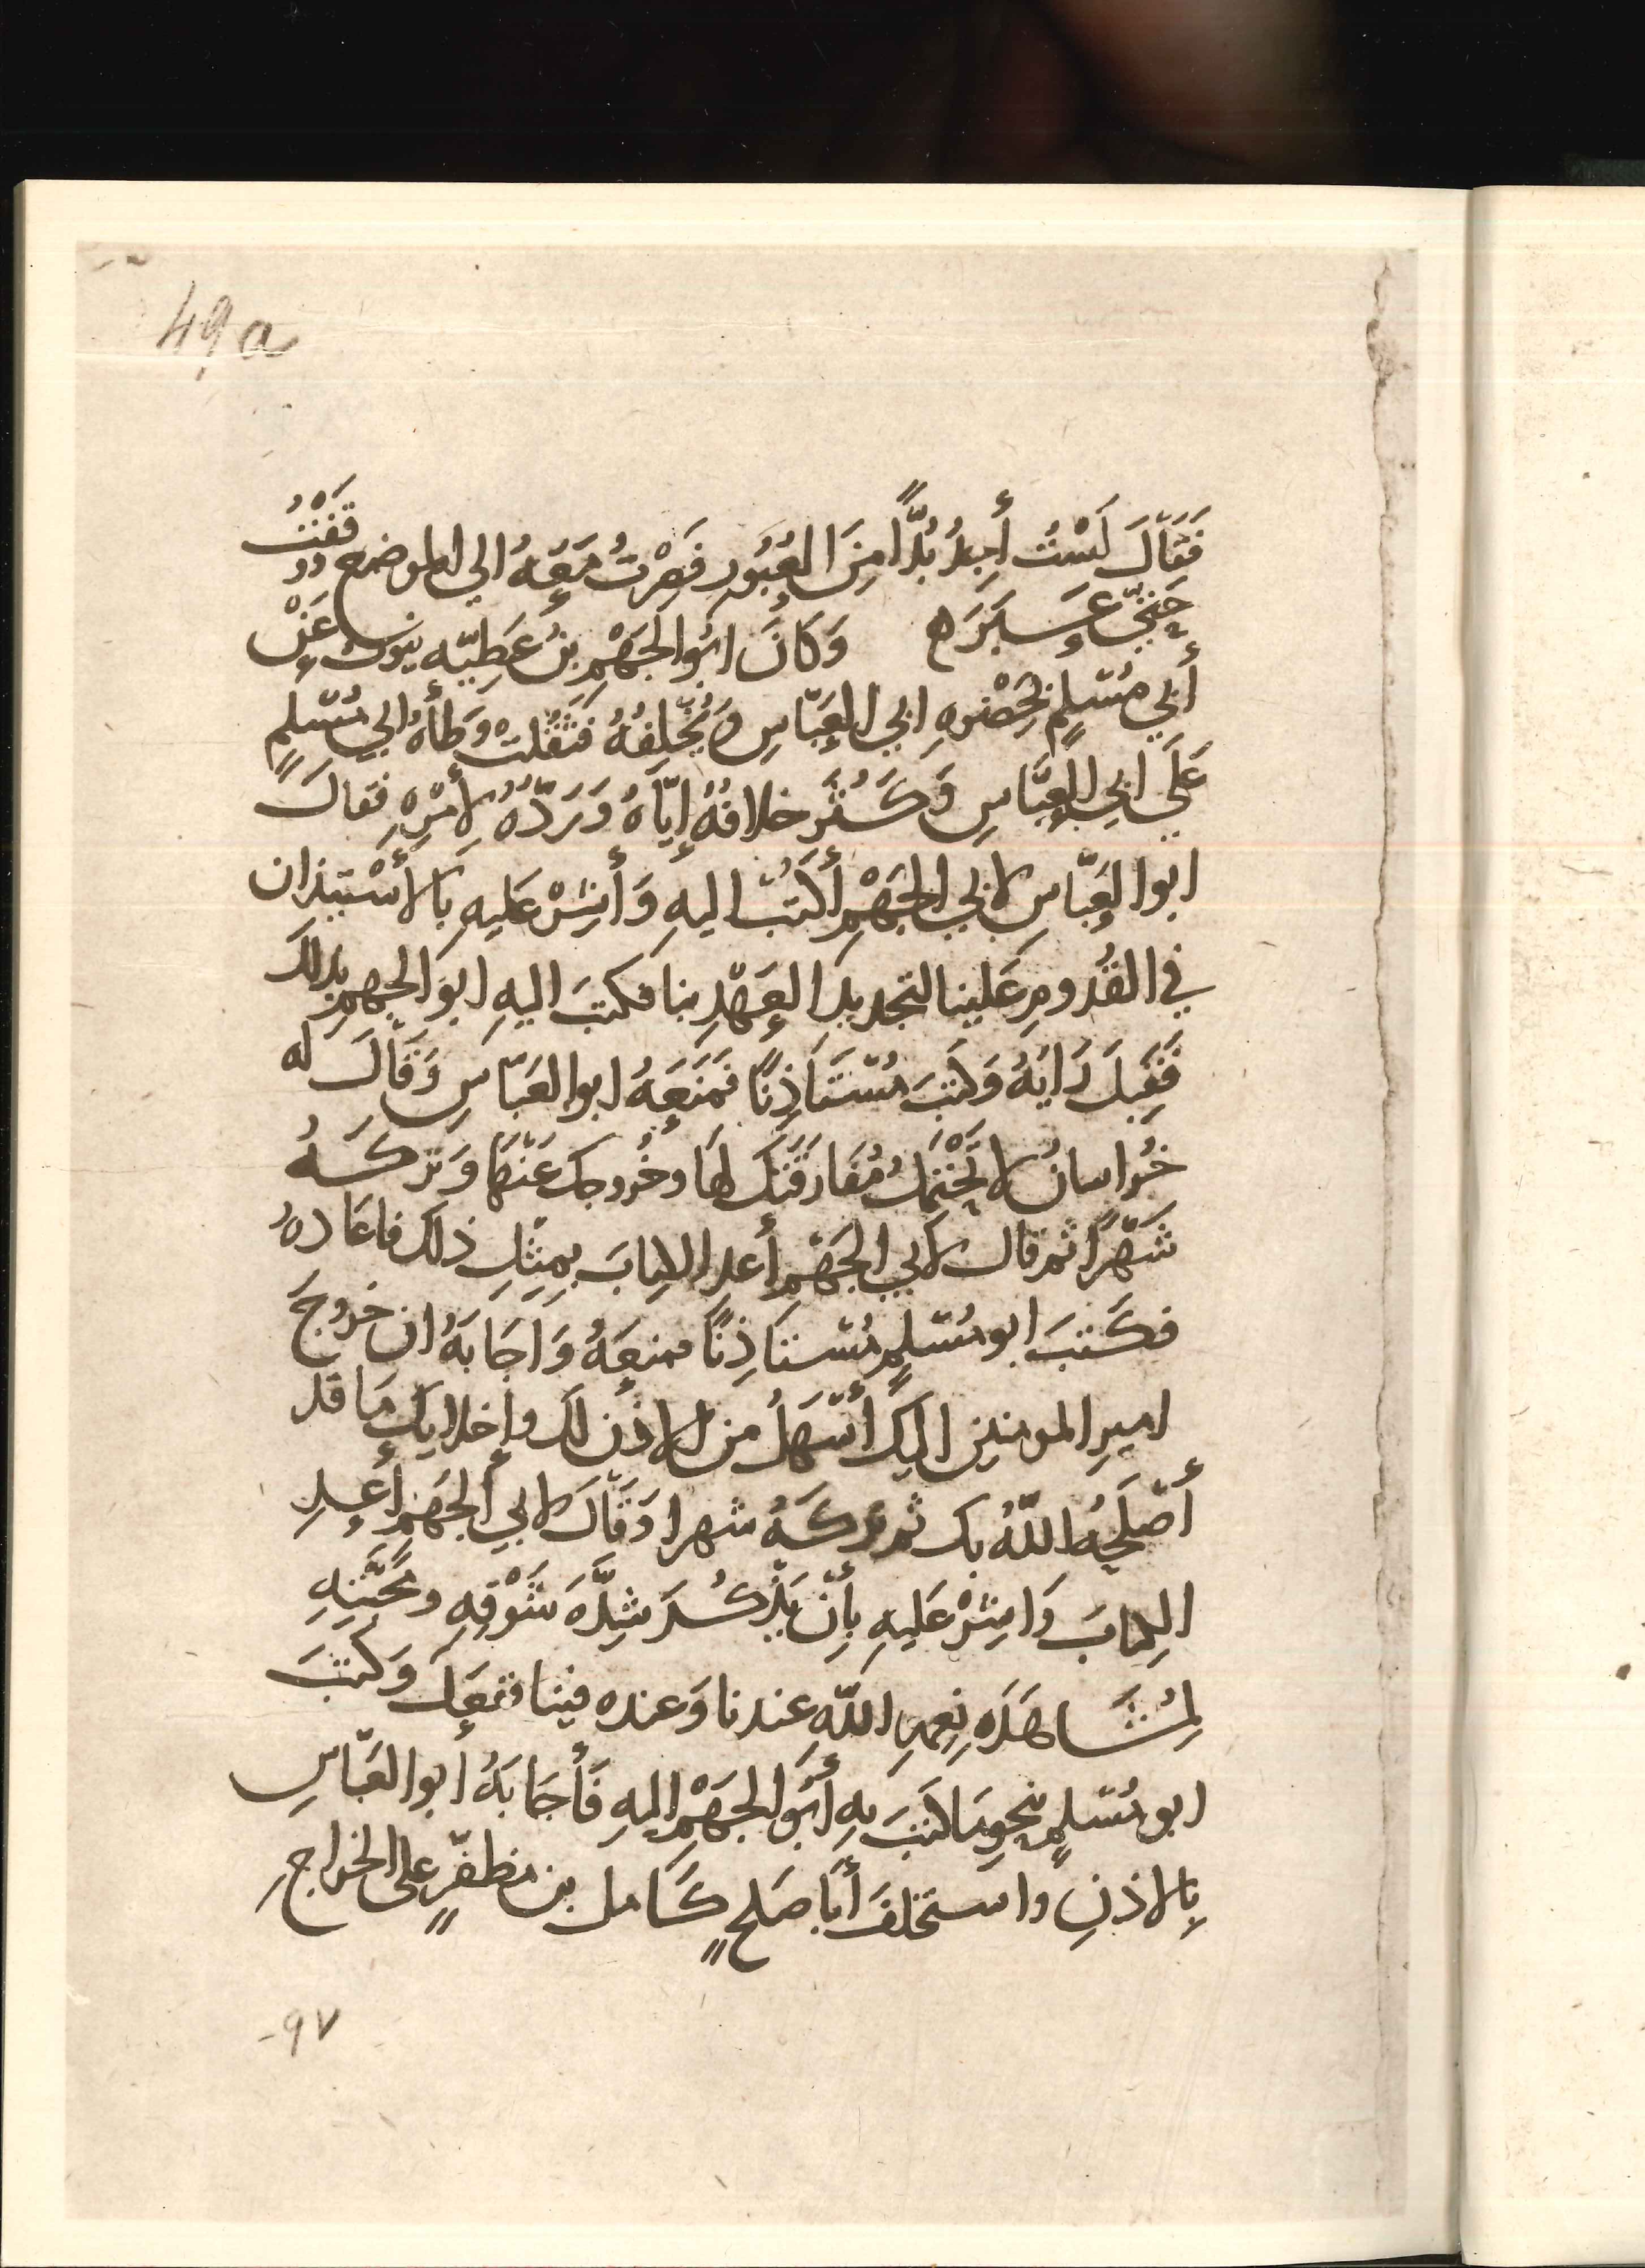 49a
فَقَالَ لَسْتُ أَجِدُ بُدًّا مِنَ العُبُورِ فَصِرْتُ مَعَهُ الي الموضع ووقَفْتُ
حَتَّي عَبَرَه وَكَانَ ابُو الجَهْمِ بنُ عَطِيّه ينوب عَنْ
أَبي مُسْلِمٍ بِحَضْرهِ ابي العَبّاسِ وَيُخْلِفُهُ فَثَقُلَتْ وَطْأَهُ ابي مُسْلِمٍ
عَلَي ابي العَبَّاسِ وَكَثُرَ خلافُهُ إِيّاَهُ وَرَدّهُ لأَمْرِهِ فقالَ
ابوا العَبّاسِ لابي الجَهْمِ أكتُبْ اليهِ وَأَشِرْ عَليهِ بِالأسْتيذان
في القُدومِ عَلينا لتجديد العَهْدِ بنا فكتبَ اليهِ ابو الجهمِ بذلك
فَقِبلَ رَايَهُ وَكتبَ مُسْتَاذِنًا فَمَنَعَهُ ابوا العَبّاسِ وَقَالَ له
خُراسانُ لا تَحْتَمِلُ مُفَارَقَتِكَ لهَا وخُروجك عَنْهَا وَتركَهُ
شَهْرًا ثم قال لأبي الجَهْمِ أَعِدِ الكِتابَ بِمِثلِ ذلك فاعَادهُ
فكَتبَ ابو مُسْلِمٍ مُسْتاذِنًا فمنعَهُ وَاجَابَهُ ان خروجَ
اميرِ المومنين اليكَ أَسْهَلُ من الاذن لك واخلايك مَا قد
أصْلَحَهُ اللّهُ بك ثم تركَهُ شهرا وَقَالَ لابي الجَهْمِ أَعِدِ
الكِتابَ وَاشِرْ عَليهِ بأنْ يَذْكُرَ شِدَّهَ شَوْقِهِ ومَحَبَّتِهِ
لمُشَاهَدَهِ نِعَمِ اللّهِ عِندنا وَعنده فينا ففعَلَ وَكتبَ
ابو مُسْلمٍ بنحوِ مَا كتبَ بِهِ أبُو الجَهْمِ إليهِ فَأَجَابَهُ أبوا العَبّاسِ
بِالاذنِ واستخلفَ أبَا صَلحٍ كَامل بن مظفّرٍ علي الخراجِ
-٩٧